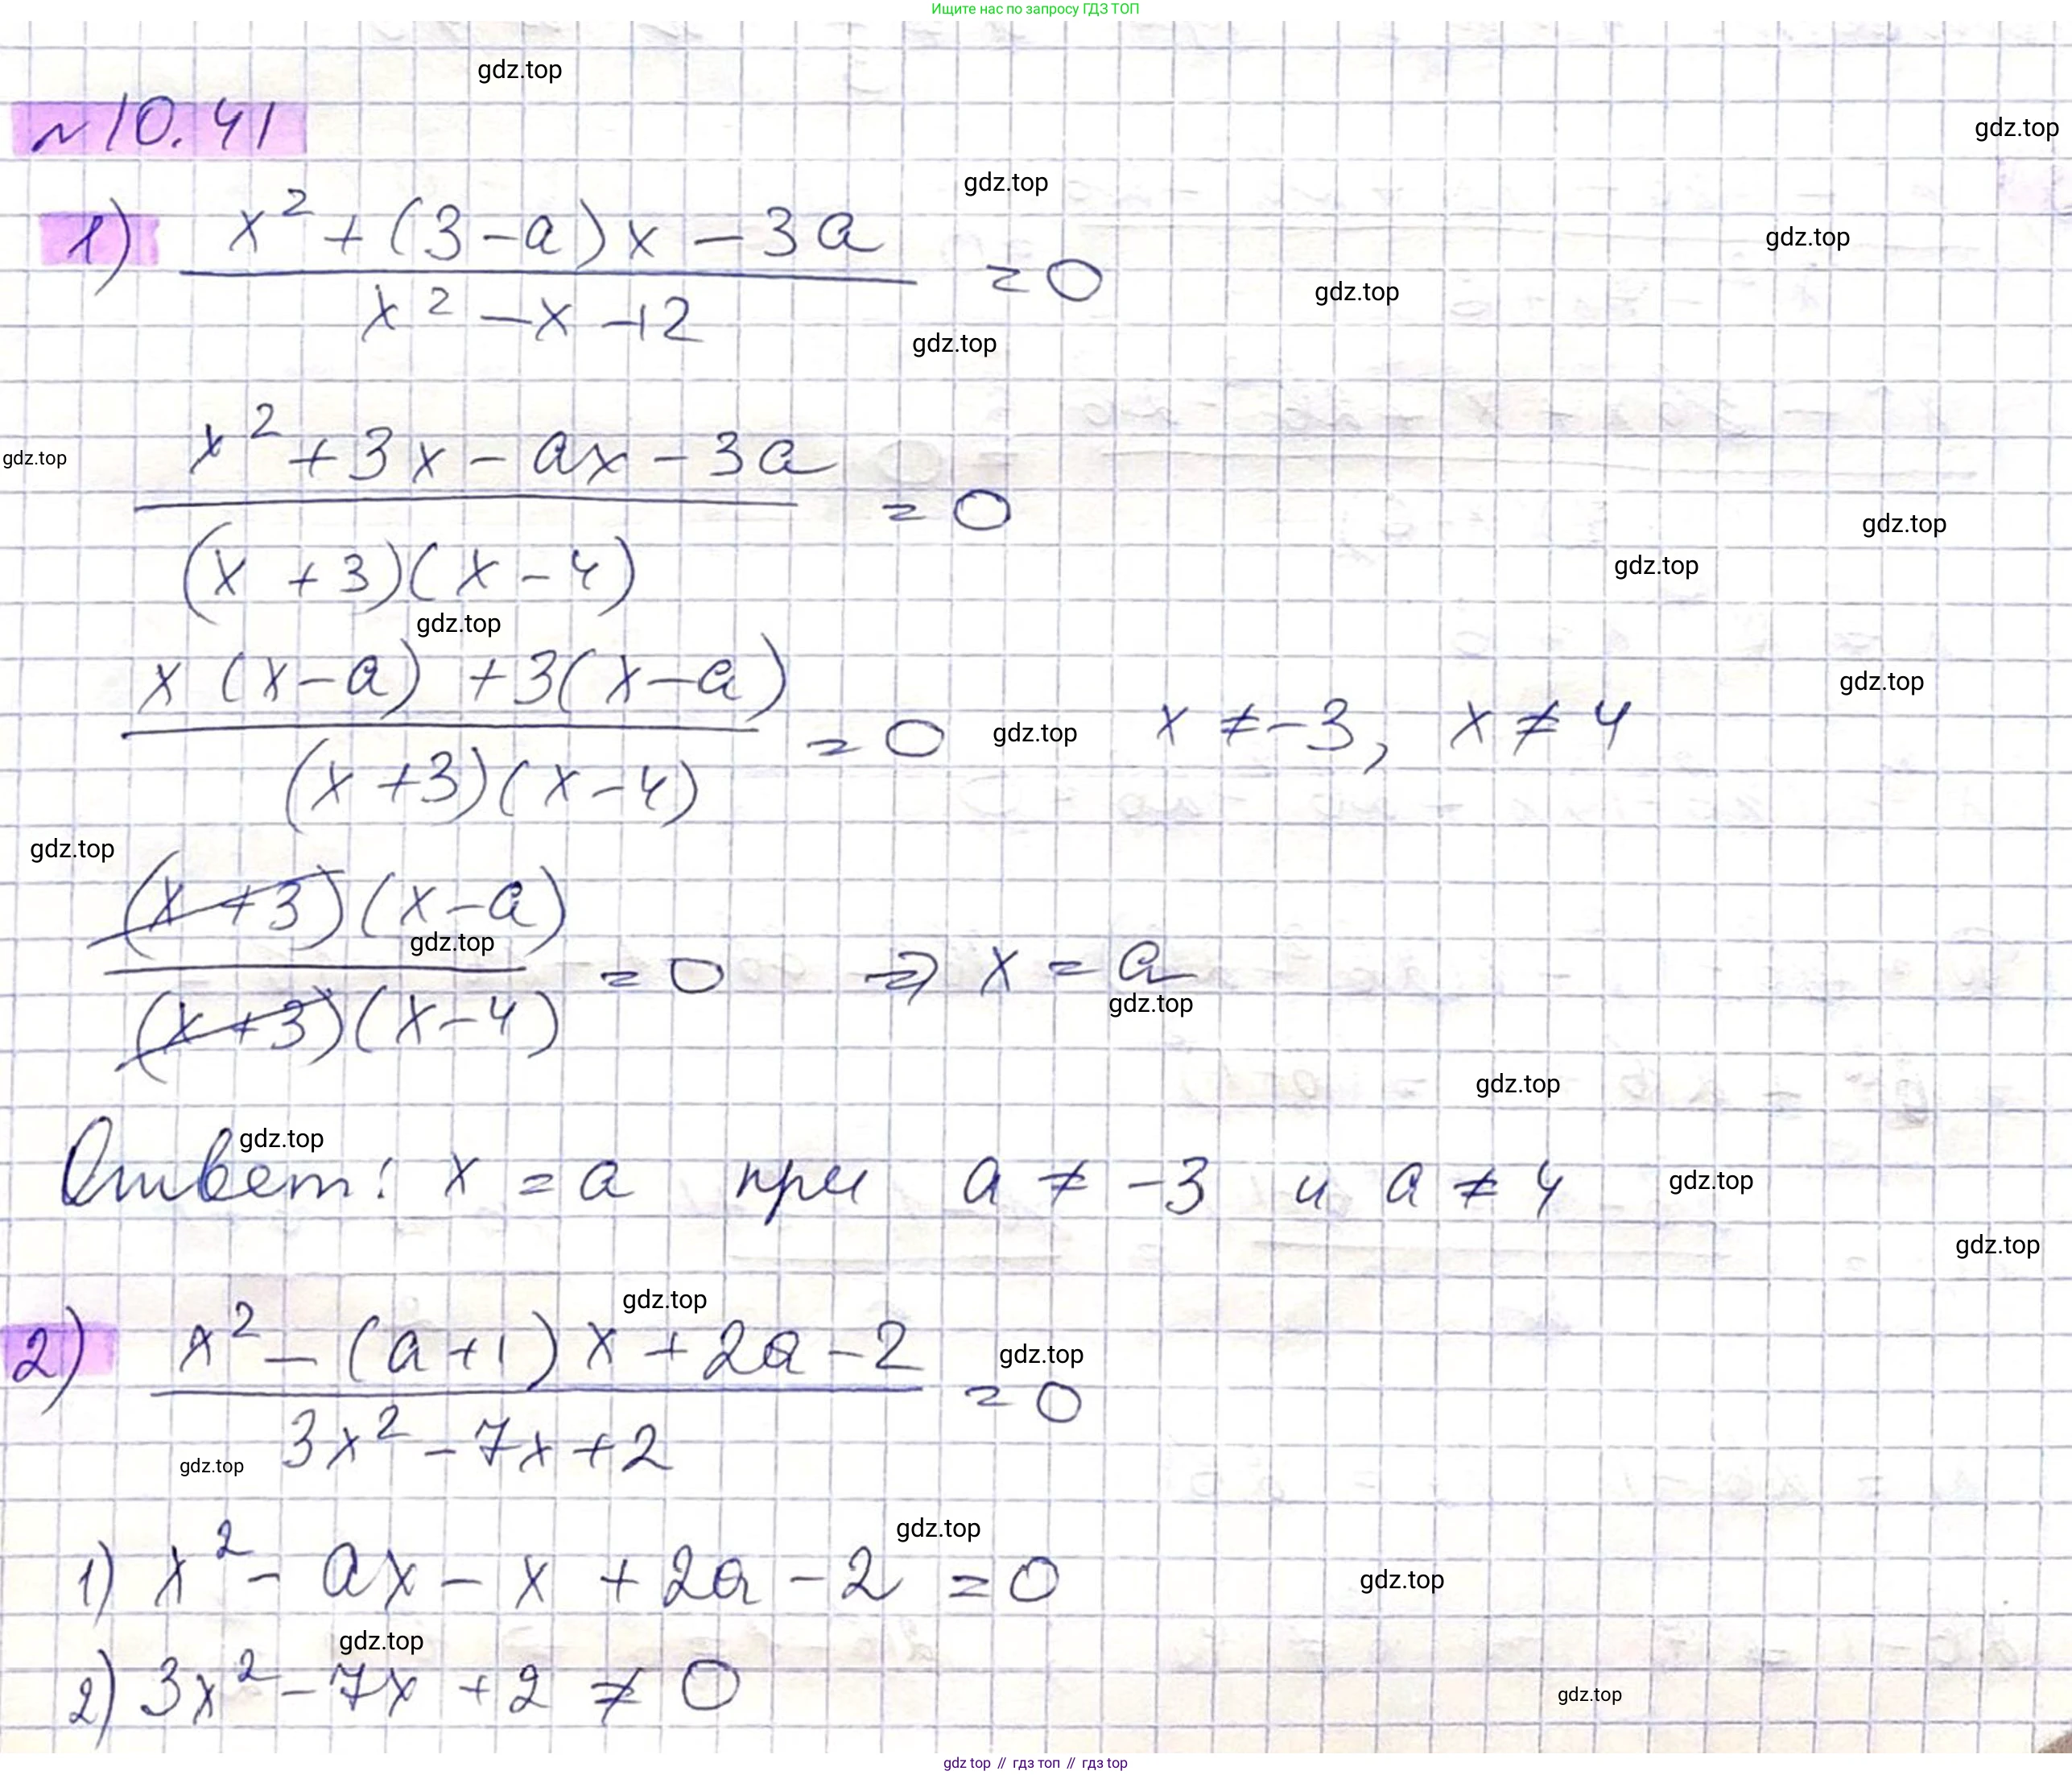 Ищите нас по запросу ГДЗ ТОП
gdz.top
№10.41
gdz.top
gdz.top
1) x² + (3 - a)x - 3a
gdz.top
x² - x - 12 = 0
gdz.top
gdz.top
x² + 3x - ax - 3a
gdz.top
(x + 3)(x - 4) = 0
gdz.top
gdz.top
gdz.top
x (x - a) + 3(x - a)
gdz.top
(x + 3)(x - 4) = 0 gdz.top x ≠ -3, x ≠ 4
gdz.top
(x + 3)(x - a)
gdz.top
(x + 3)(x - 4) = 0 ⇒ x = a
gdz.top
gdz.top
gdz.top
Ответ: x = a при a ≠ -3 и a ≠ 4
gdz.top
gdz.top
gdz.top
2) x² - (a + 1)x + 2a - 2
gdz.top
3x² - 7x + 2 = 0
gdz.top
gdz.top
1) x² - ax - x + 2a - 2 = 0
gdz.top
gdz.top
2) 3x² - 7x + 2 ≠ 0
gdz.top
gdz top // гдз топ // гдз top